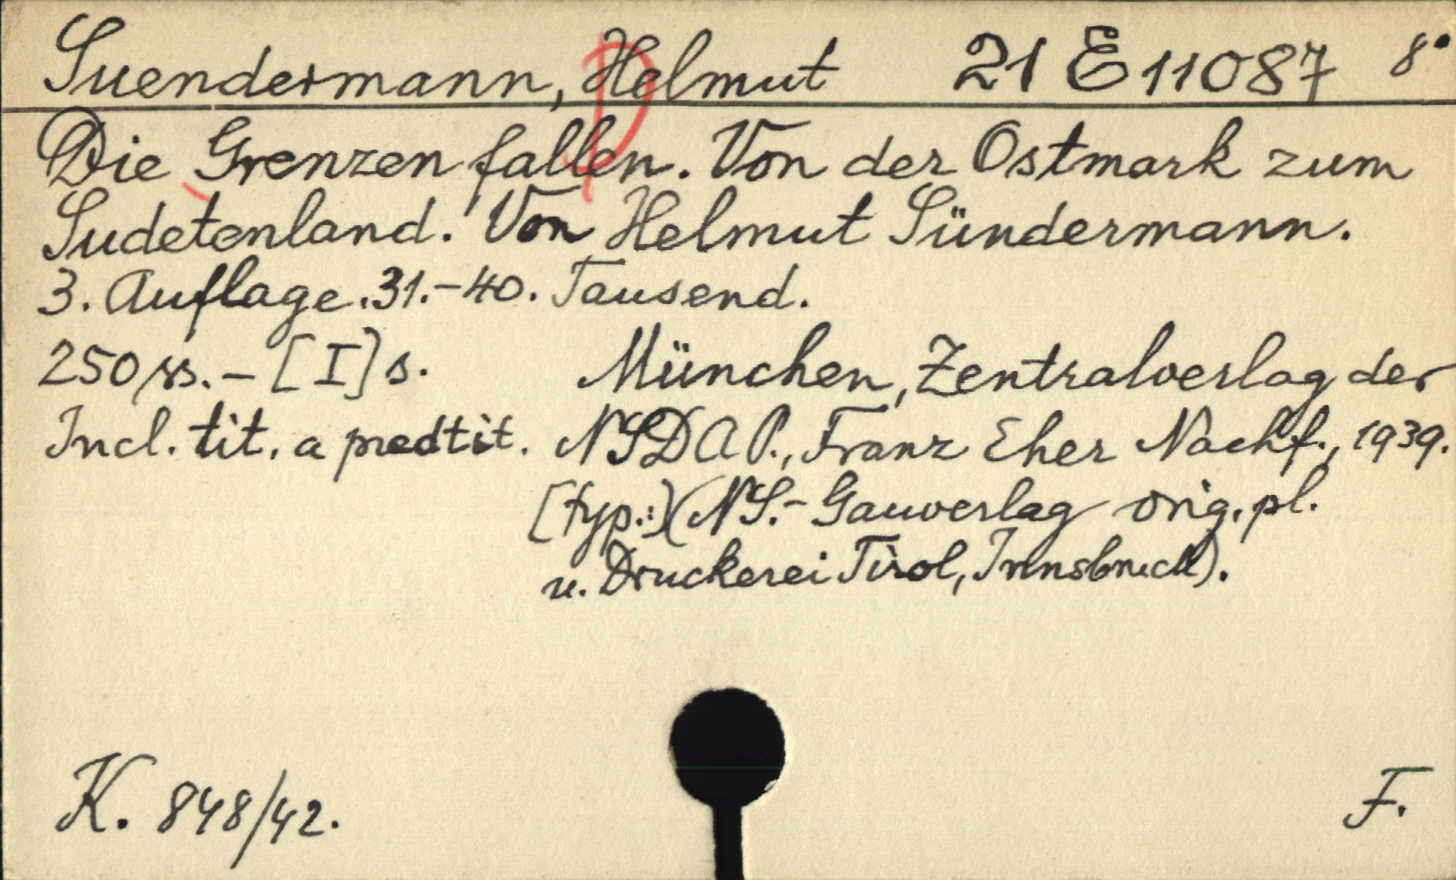 Suendermann, Helmut 21 E 11087 8°
Die Grenzen fallen. Von der Ostmark zum
Sudetenland. Von Helmut Sündermann.
3. Auflage. 31.-40. Tausend.
250 ss. - [I] s. München, Zentralverlag der
Incl. tit. a predtit. NSDAP., Franz Eher Nachf., 1939.
[typ.:] (NS.- Gauverlag orig. pl.
u. Druckerei Tirol, Innsbruck).
K. 848/42. F.